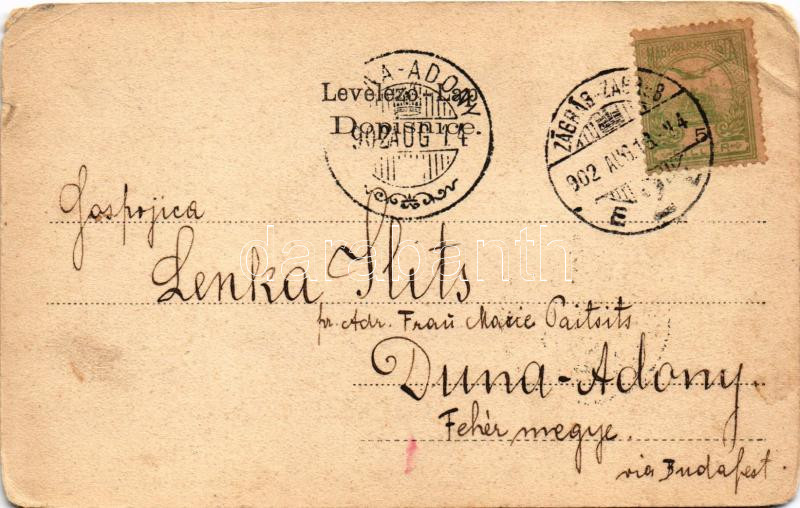 MAGYAR KIR. POSTA
5
DUNA-ADONY
902 AUG 14
ZÁGRÁB-ZAGREB
902 AUG. 13.
E
Levelező-Lap
Dopisnice.
Gospojica
Lenka Ilits
pr. Adr. Frau Marie Paitsits
Duna-Adony.
Fehér megye.
via Budafest.
darabanth